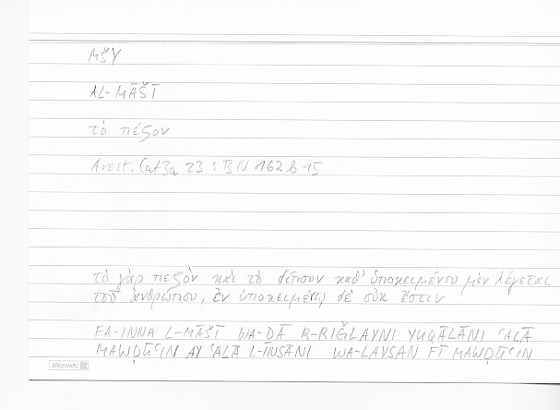 MŠY
AL-MĀŠĪ
τὸ πέζον
Arist. Cat 3a 23 : BN 162 b 15
τὸ γὰρ πεζὸν καὶ τὸ δίπουν καθ' ὑποκειμένου μὲν λέγεται
τοῦ ἀνθρώπου, ἐν ὑποκειμένῳ δὲ οὐκ ἔστιν
FA-INNA L-MĀŠĪ WA-ḎĀ R-RIĞLAYNI YUQĀLĀNI ʿALĀ
MAWḌŪʿIN AY ʿALĀ L-INSĀNI WA-LAYSAN FĪ MAWḌŪʿIN